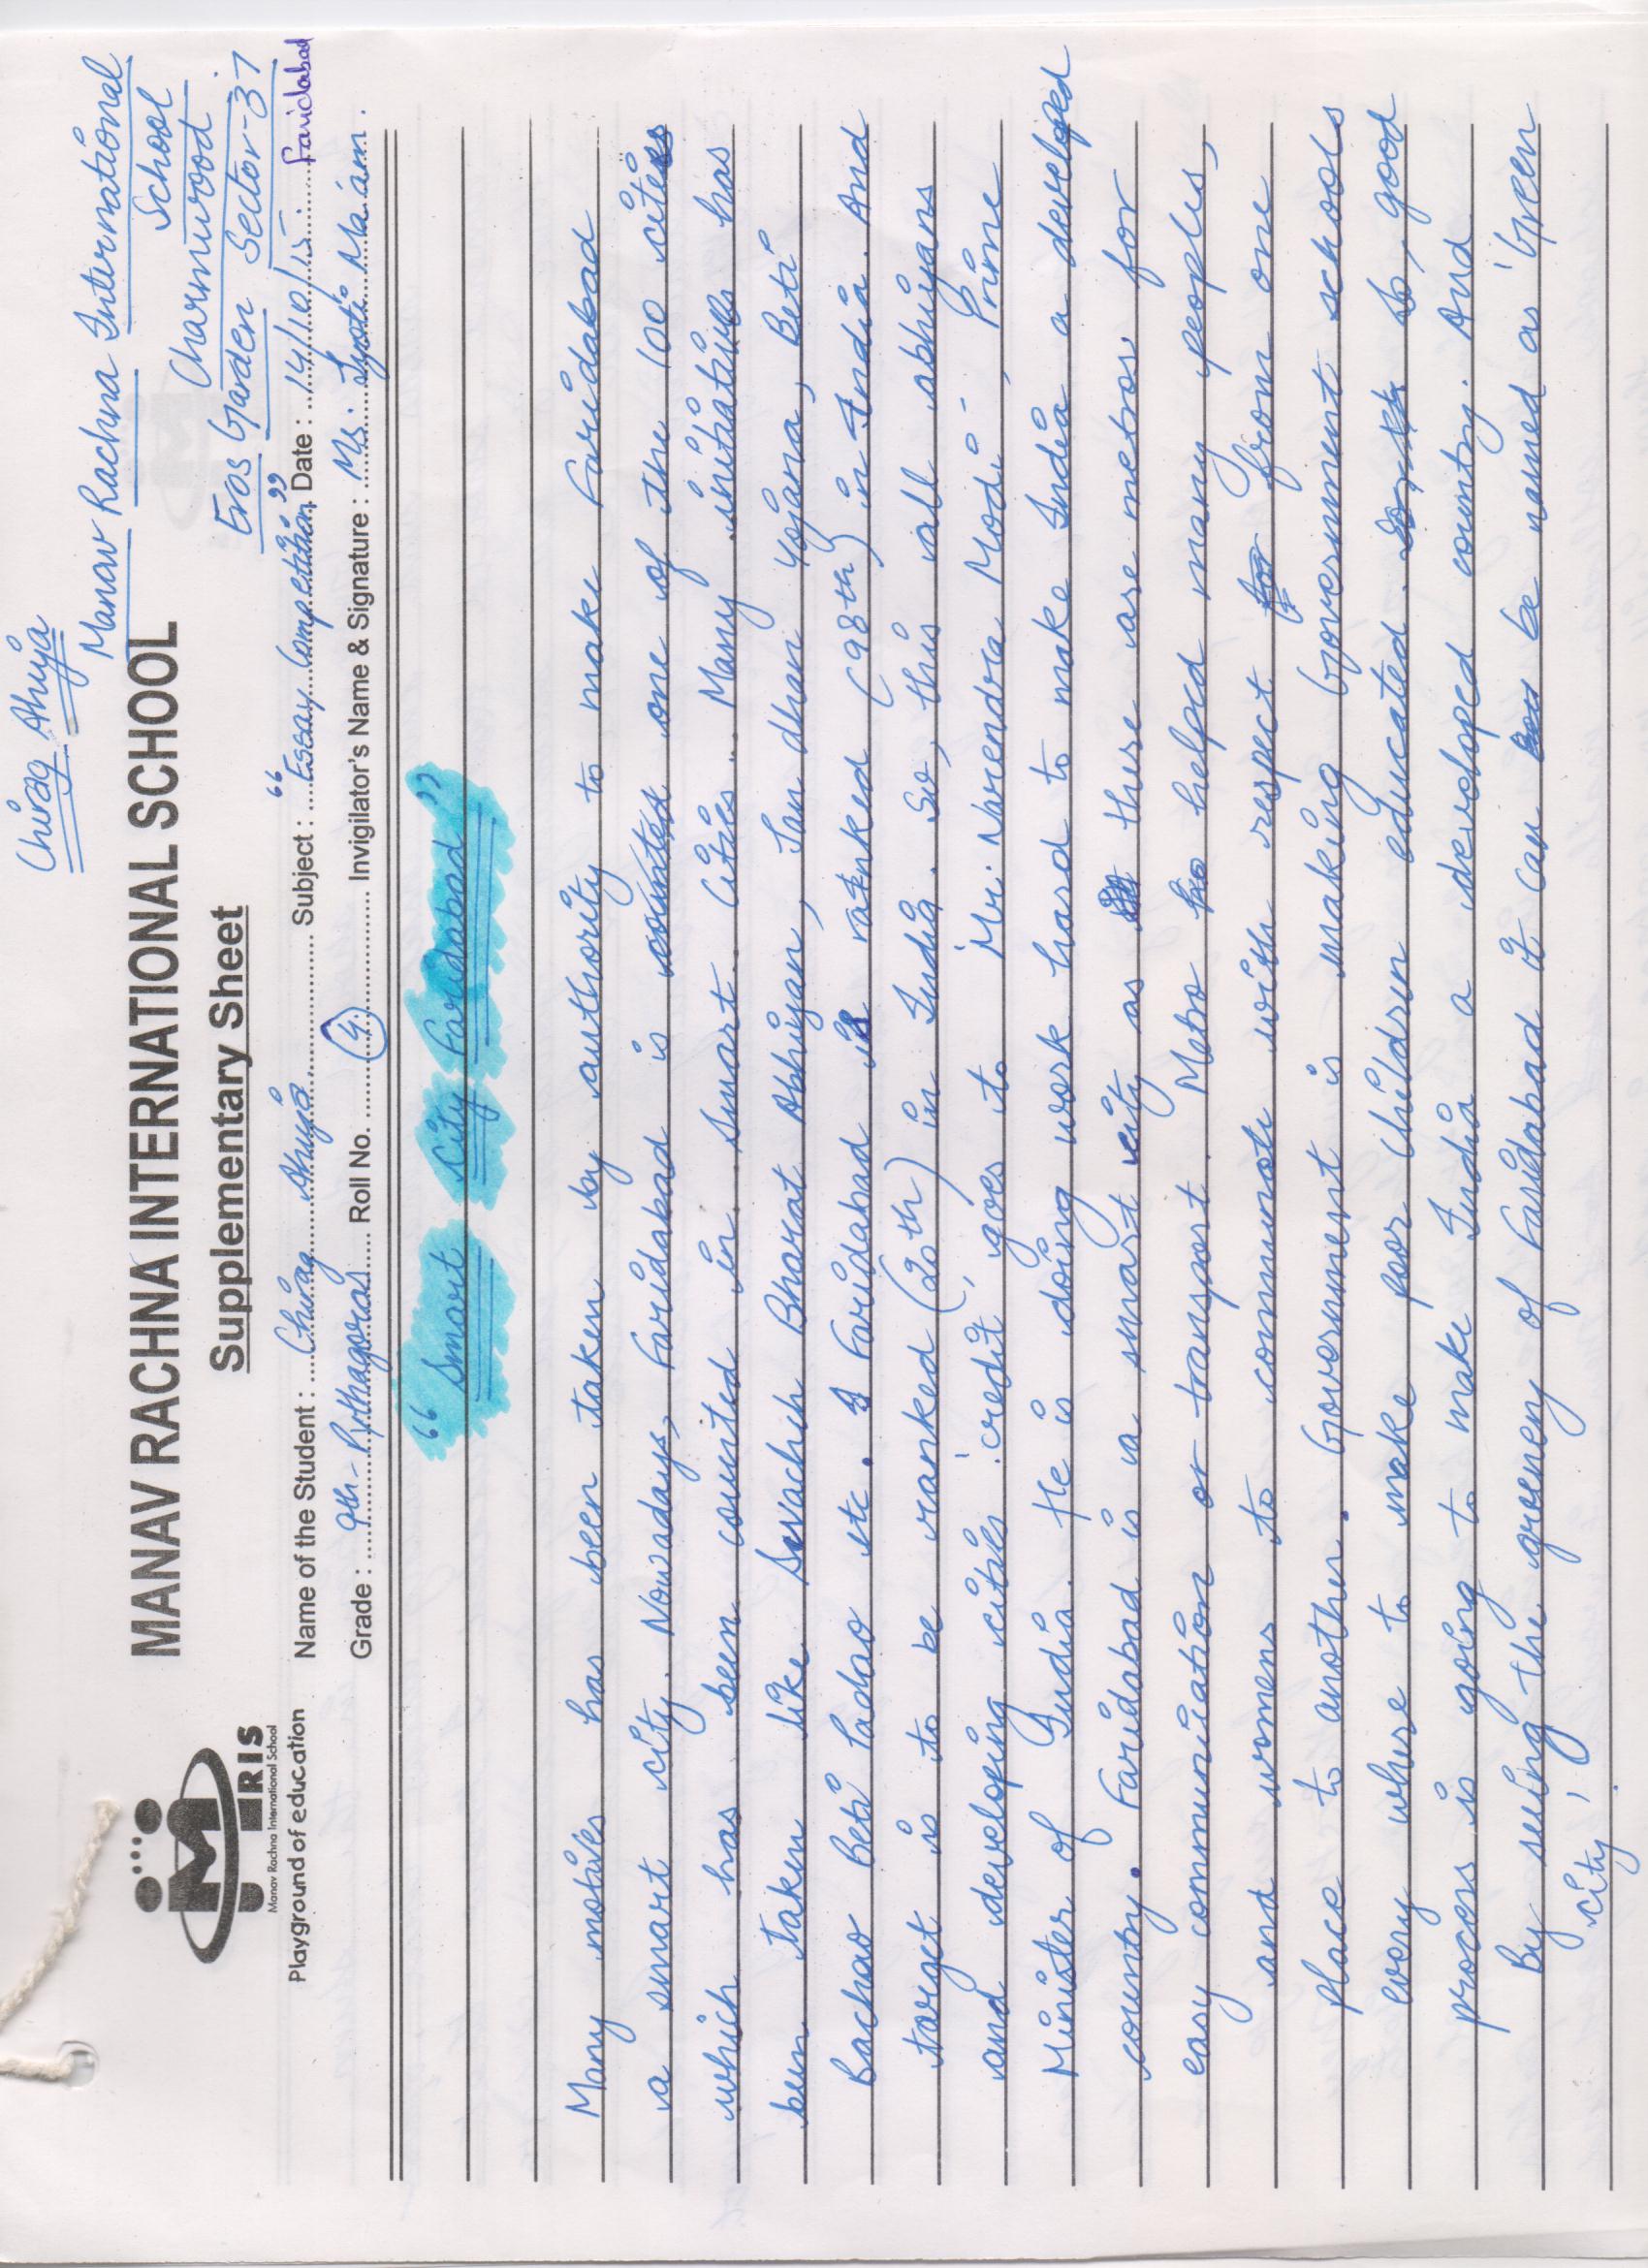 Chirag Ahuja
Manav Rachna International
School
Charmwood
Eros Garden Sector-37
Faridabad
MRIS
Manav Rachna International School
Playground of education
MANAV RACHNA INTERNATIONAL SCHOOL
Supplementary Sheet
Name of the Student : Chirag Ahuja Subject : "Essay Competition" Date : 14/10/15
Grade : 9th- Pythagoras Roll No. 4. Invigilator's Name & Signature : Ms. Jyoti Ma'am.
"Smart City Faridabad"
Many motives has been taken by authority to make Faridabad
a smart city. Nowadays, Faridabad is counted one of the 100 cities
which has been counted in Smart Cities. Many initiatives has
been taken like Swachh Bharat Abhiyan, Jan dhan Yojana, Beti
Bachao Beti Padhao etc. Faridabad is ranked (98th) in India. And
target is to be ranked (20th) in India. So, this all abhiyans
and developing cities 'credit' goes to Mr. Narendra Modi -, Prime
Minister of India. He is doing work hard to make India a developed
country. Faridabad is a smart city as there are metros for
easy communication or transport. Metro helped many peoples,
and womens to communote with respect from one
place to another. Government is making Government schools
every where to make poor children educated. So, good
process is going to make India a developed country. And
By seeing the greeney of Faridabad it can be named as 'Green
City'